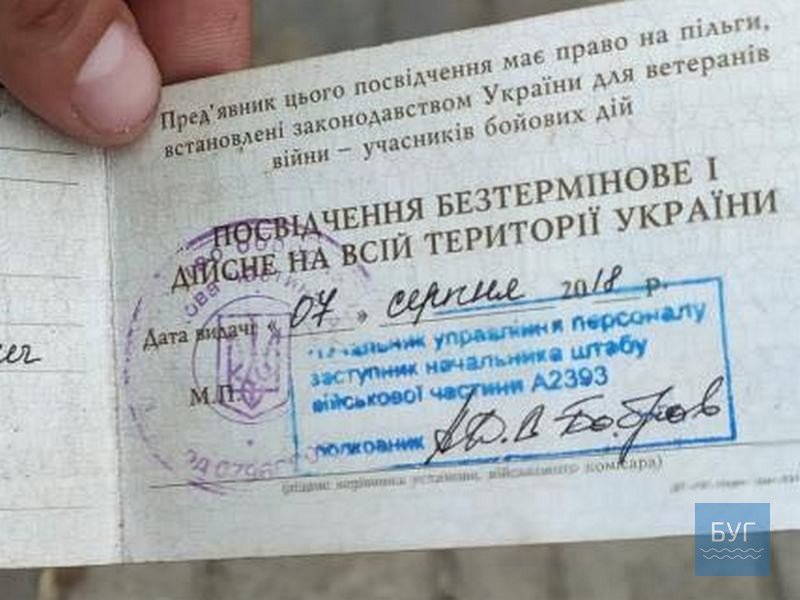 Пред'явник цього посвідчення має право на пільги,
встановлені законодавством України для ветеранів
війни – учасників бойових дій
ПОСВІДЧЕННЯ БЕЗТЕРМІНОВЕ І
ДІЙСНЕ НА ВСІЙ ТЕРИТОРІЇ УКРАЇНИ
Дата видачі « 07 » серпня 2018 р.
Начальник управління персоналу
заступник начальника штабу
військової частини А2393
М.П.
полковник Бобров
(підпис керівника установи, військового комісара)
БУГ